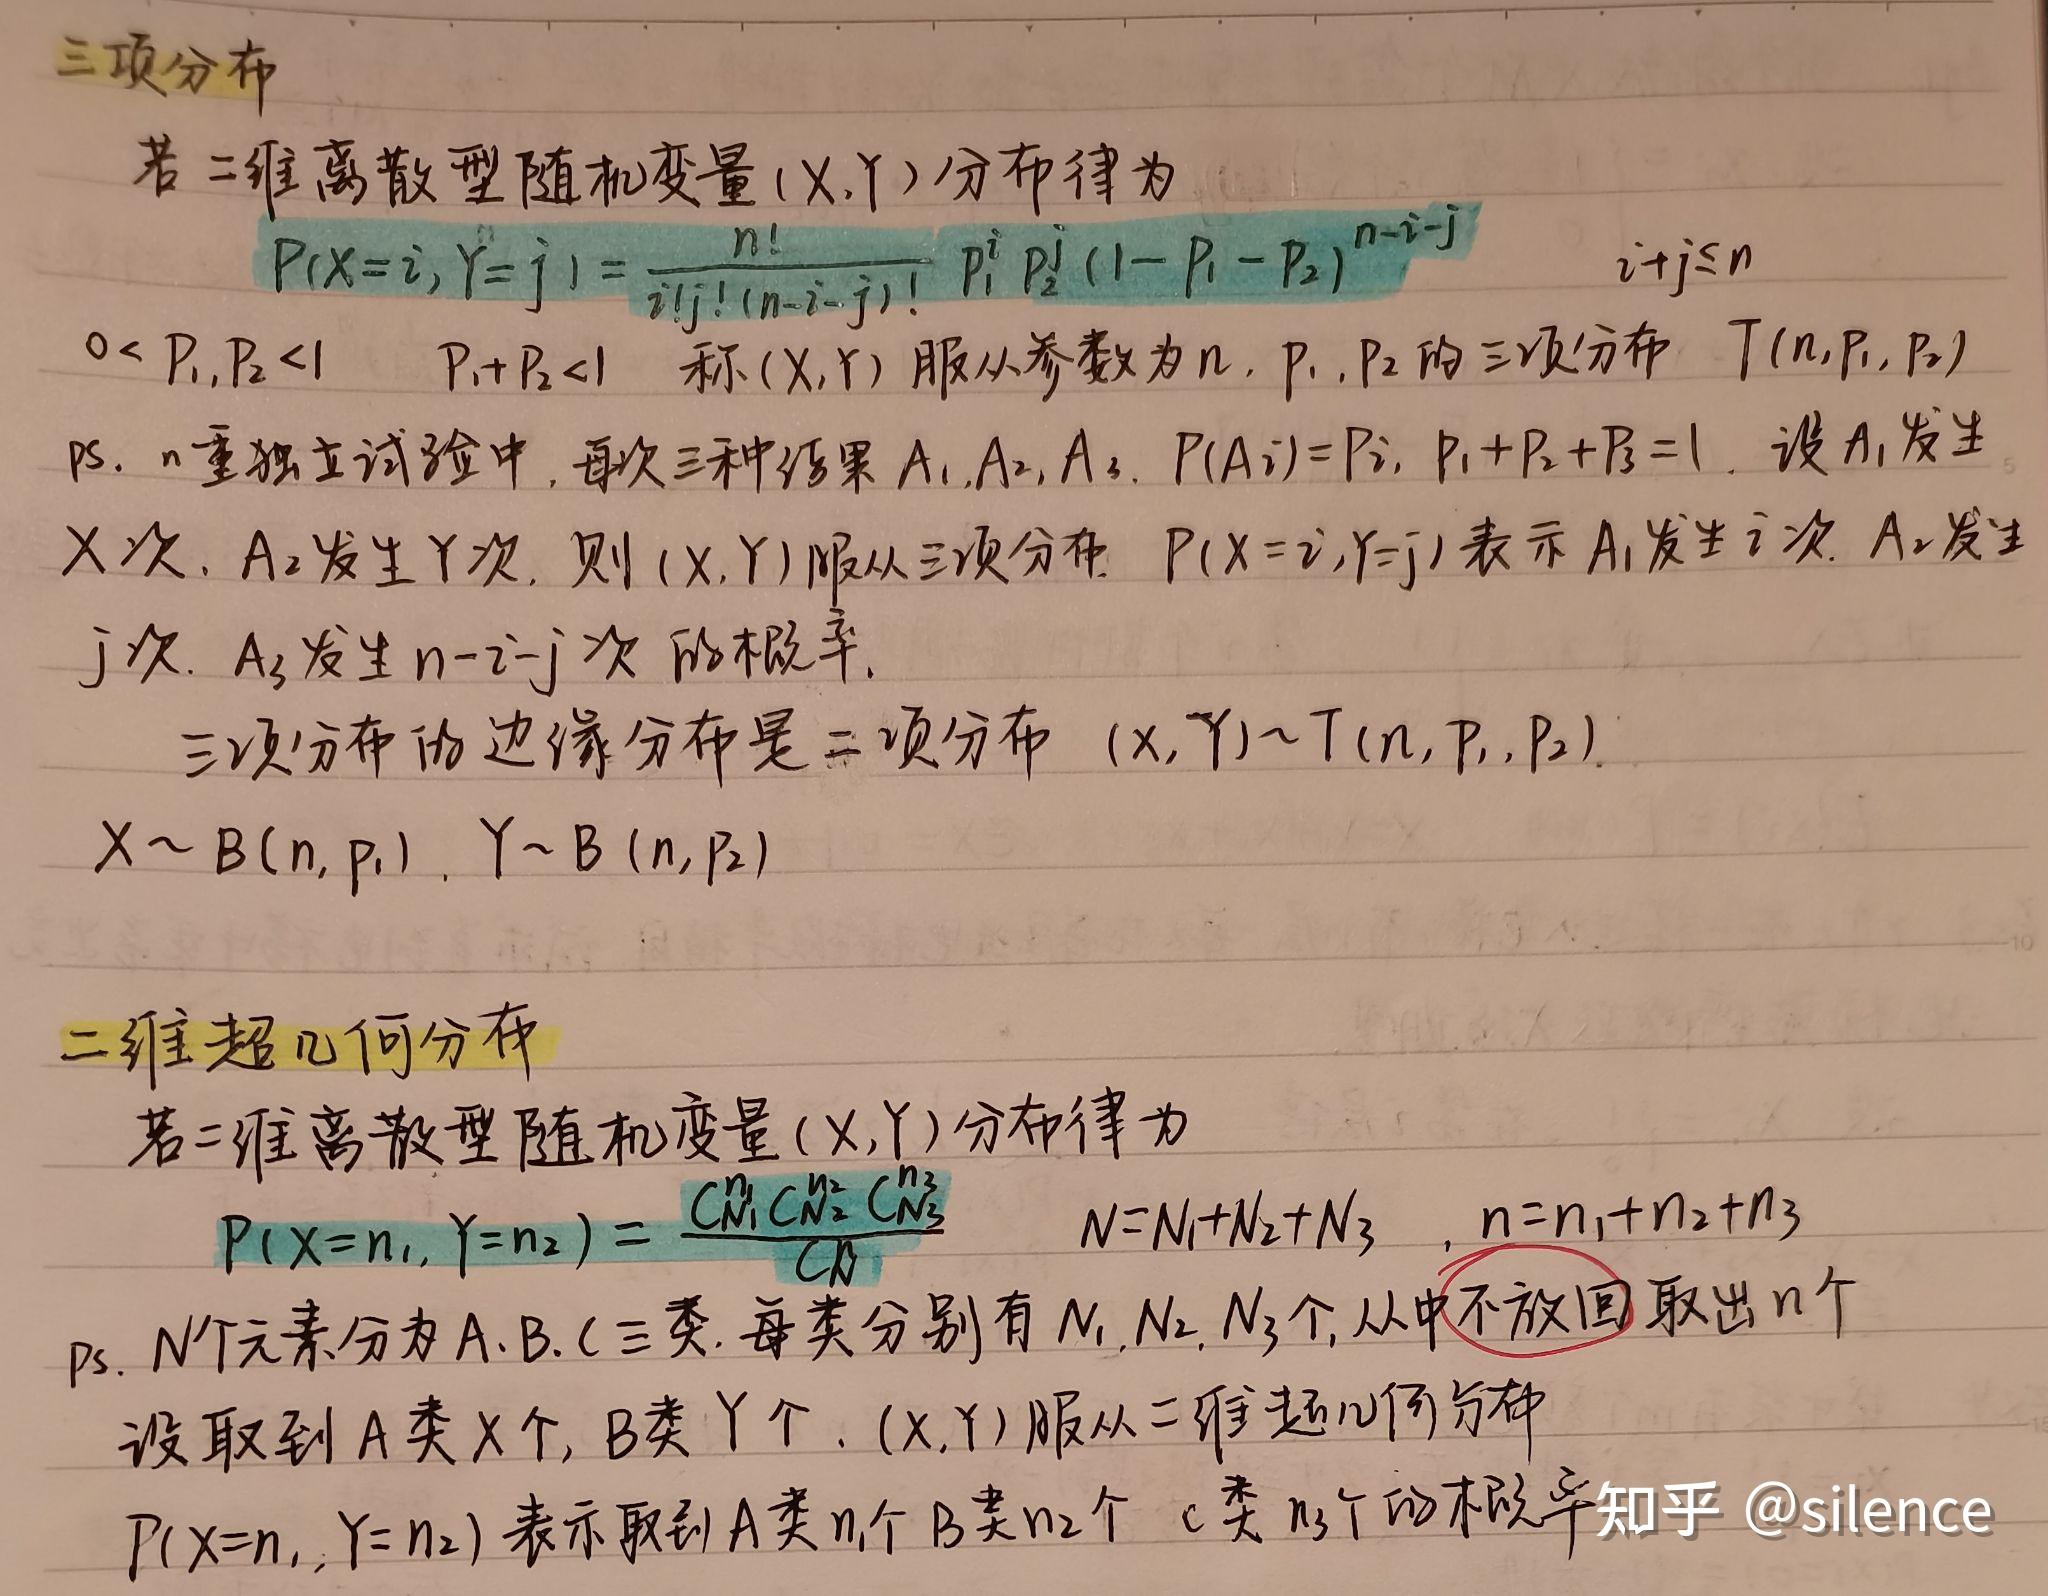 三项分布
若二维离散型随机变量(X,Y)分布律为
P(X=i,Y=j)=n!/(i!j!(n-i-j)!) p₁ⁱ p₂ʲ (1-p₁-p₂)ⁿ⁻ⁱ⁻ʲ i+j≤n
0<p₁,p₂<1 p₁+p₂<1 称(X,Y)服从参数为n,p₁,p₂的三项分布 T(n,p₁,p₂)
ps. n重独立试验中,每次三种结果A₁,A₂,A₃. P(Ai)=Pi, p₁+p₂+p₃=1. 设A₁发生
X次, A₂发生Y次, 则(X,Y)服从三项分布. P(X=i,Y=j)表示A₁发生i次. A₂发生
j次. A₃发生n-i-j次的概率.
三项分布的边缘分布是二项分布 (X,Y)~T(n,p₁,p₂).
X~B(n,p₁), Y~B(n,p₂)
二维超几何分布
若二维离散型随机变量(X,Y)分布律为
P(X=n₁,Y=n₂)=C_{N₁}^{n₁}C_{N₂}^{n₂}C_{N₃}^{n₃}/C_N^n N=N₁+N₂+N₃, n=n₁+n₂+n₃
ps. N个元素分为A.B.C三类.每类分别有N₁,N₂,N₃个,从中不放回取出n个
设取到A类X个, B类Y个. (X,Y)服从二维超几何分布
P(X=n₁,Y=n₂)表示取到A类n₁个 B类n₂个 C类n₃个的概率
知乎 @silence